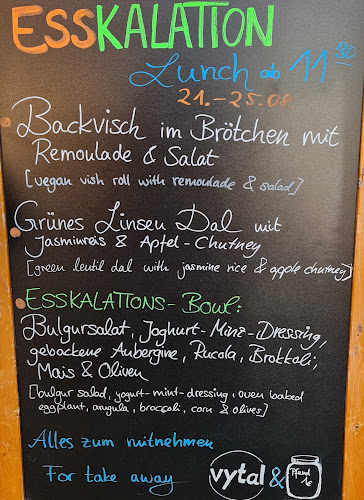 ESSKALATION
Lunch ab 11³⁰
21.-25.08.
Backvisch im Brötchen mit
Remoulade & Salat
[vegan vish roll with remoulade & salad]
Grünes Linsen Dal mit
Jasminreis & Apfel-Chutney
[green lentil dal with jasmine rice & apple chutney]
ESSKALATIONS-Bowl:
Bulgursalat, Joghurt-Minz-Dressing,
gebackene Aubergine, Rucola, Brokkoli,
Mais & Oliven
[bulgur salad, yogurt-mint-dressing, oven baked
eggplant, arugula, broccoli, corn & olives]
Alles zum mitnehmen
For take away
vytal & Pfand
1€